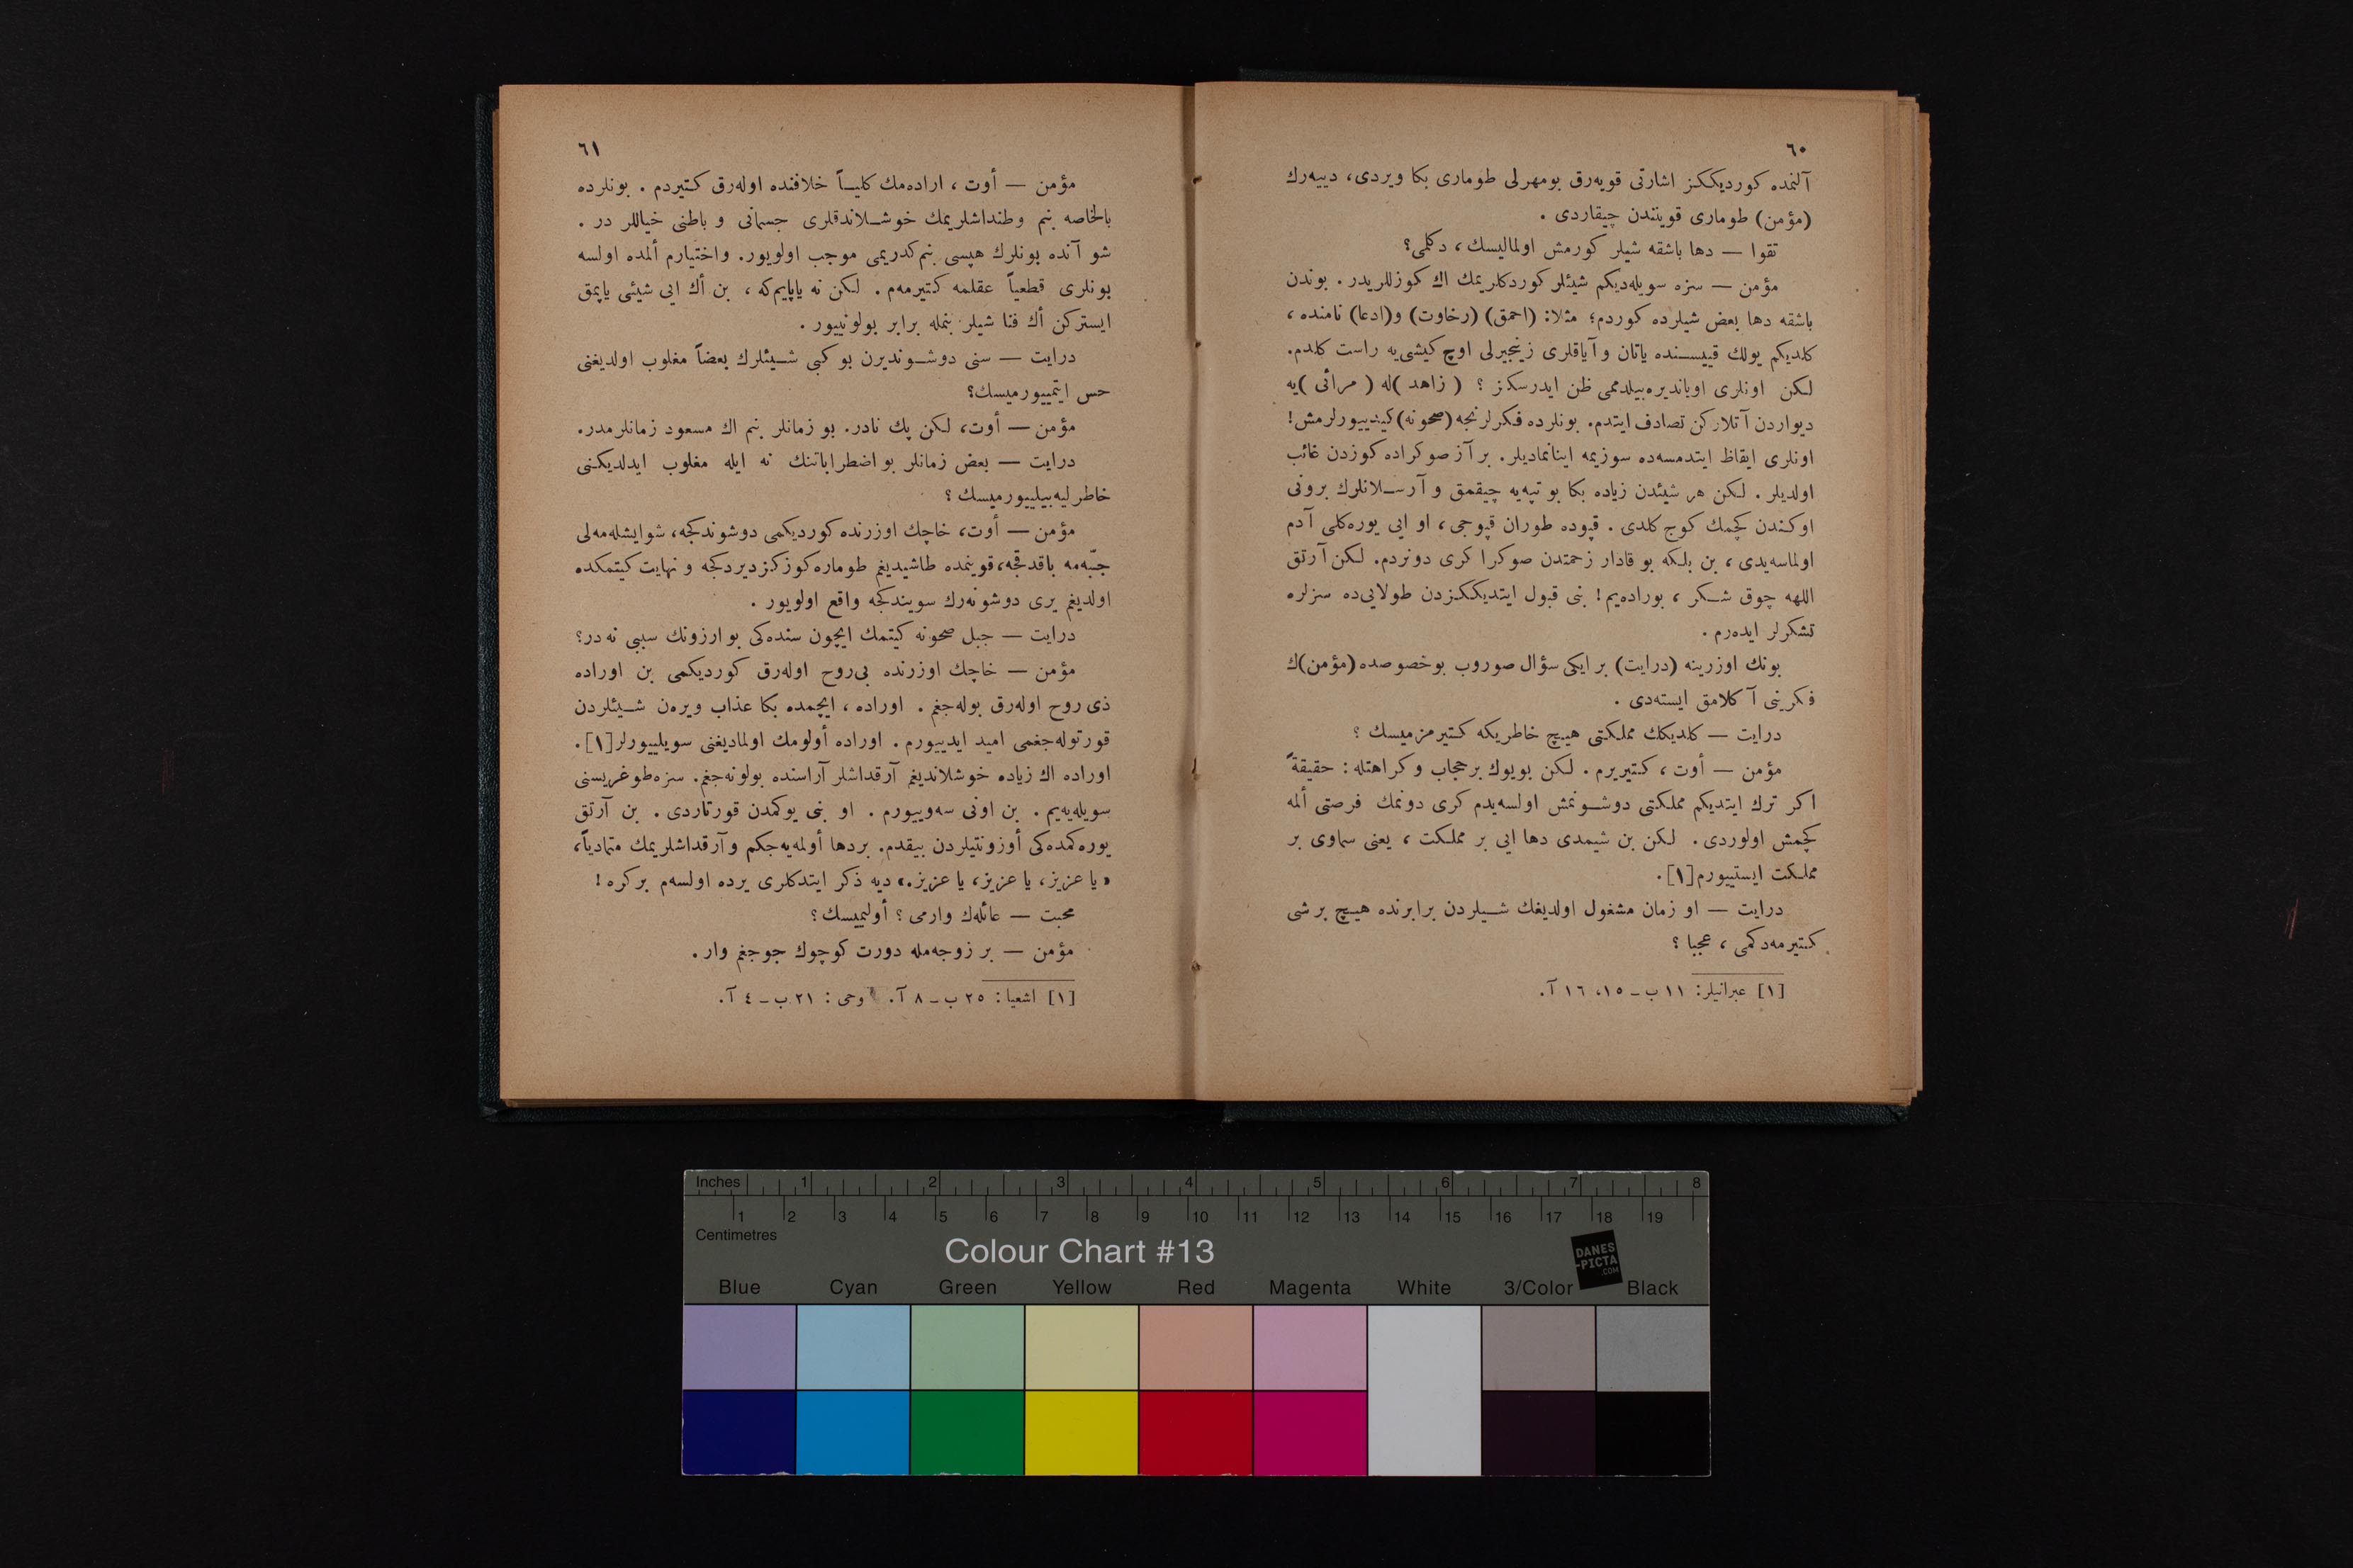 ٦٠
آلنمده كورديككز اشارتى قويه‌رق بومهرلى طومارى بكا ويردى، دييه‌رك
(مؤمن) طومارى قويندن چيقاردى .
تقوا — دها باشقه شيلر كورمش اولماليسك، دكلمى؟
مؤمن — سزه سويله‌ديكم شيئلر كوردكلريمك اك كوزللريدر. بوندن
باشقه دها بعض شيلرده كوردم؛ مثلا: (احمق) (رخاوت) و(ادعا) نامنده،
كلديكم يولك قييسـنده ياتان و آياقلرى زينجيرلى اوچ كيشى‌يه راست كلدم.
لكن اونلرى اوياند‌يره‌بيلدممى ظن ايدرسكز ؟ ( زاهد )له ( مرائى )يه
ديواردن آتلاركن تصادف ايتدم. بونلرده فكرلرنجه (صحونه) كيدييورلرمش!
اونلرى ايقاظ ايتدمسه‌ده سوزيمه اينانماديلر. بر آز صوكراده كوزدن غائب
اولديلر . لكن هر شيئدن زياده بكا بو تپه‌يه چيقمق و آرسـلانلرك برونى
اوكندن كچمك كوج كلدى . قپوده طوران قپوجى، او ايى يوره‌كلى آدم
اولماسه‌يدى، بن بلكه بو قادار زحمتدن صوكرا كرى دونردم. لكن آرتق
اللهه چوق شـكر ، بوراده‌يم! بنى قبول ايتديككزدن طولايى‌ده سزلره
تشكرلر ايده‌رم .
بونك اوزرينه (درايت) بر ايكى سؤال صوروب بوخصوصده (مؤمن)ك
فكرينى آكلامق ايسته‌دى .
درايت — كلديكك مملكتى هيـچ خاطريكه كتيرمزميسك ؟
مؤمن — أوت، كتيريرم . لكن بويوك برحجاب و كراهتله : حقيقةً
اكر ترك ايتديكم مملكتى دوشـونمش اولسه‌يدم كرى دونمك فرصتى ألمه
كچمش اولوردى . لكن بن شيمدى دها ايى بر مملكت ، يعنى سماوى بر
مملكت ايستييورم[١].
درايت — او زمان مشغول اولديغك شـيلردن برابرنده هيـچ بر شى
كتيرمه‌دكمى ، عجبا ؟
[١] عبرانيلر: ١١ ب ـ ١٥، ١٦ آ.
٦١
مؤمن — أوت ، اراده‌مك كليـاً خلافنده اوله‌رق كـتيردم . بونلرده
بالخاصه بنم وطنداشلريمك خوشـلاندقلرى جسمانى و باطنى خياللر در .
شو آنده بونلرك هپسى بنم كدريمى موجب اولويور. واختيارم ألمده اولسه
بونلرى قطعياً عقلمه كتيرمه‌م. لكن نه ياپايم‌كه ، بن أك ايى شيئى ياپمق
ايستركن أك فنا شيلر بنمله برابر بولونييور .
درايت — سنى دوشـونديرن بو كبى شـيئلرك بعضاً مغلوب اولديغنى
حس ايتمييورميسك؟
مؤمن — أوت، لكن پك نادر. بو زمانلر بنم اك مسعود زمانلرمدر.
درايت — بعض زمانلر بو اضطراباتنك نه ايله مغلوب ايدلديكنى
خاطرليه‌بيلييورميسك ؟
مؤمن — أوت، خاچك اوزرنده كورديكمى دوشوندكجه، شوايشله‌مه‌لى
جبّه‌مه باقدقجه، قوينمده طاشيديغم طوماره كوزكزديردكجه و نهايت كيتمكده
اولديغم يرى دوشونه‌رك سويندكجه واقع اولويور .
درايت — جبل صحونه كيتمك ايچون سنده‌كى بو ارزونك سببى نه در؟
مؤمن — خاچك اوزرنده بى‌روح اوله‌رق كورديكمى بن اوراده
ذى روح اوله‌رق بوله‌جغم . اوراده ، ايچمده بكا عذاب ويره‌ن شـيئلردن
قورتوله‌جغمى اميد ايدييورم . اوراده أولومك اولماديغنى سويلييورلر[١].
اوراده اك زياده خوشلانديغم آرقداشلر آراسنده بولونه‌جغم. سزه‌طوغريسنى
سويله‌يه‌يم . بن اونى سه‌وييورم . او بنى يوكمدن قورتاردى . بن آرتق
يوره‌كمده‌كى أوزونتيلردن بيقدم. بردها أولمه‌يه‌جكم و آرقداشلريمك متمادياً،
« يا عزيز، يا عزيز، يا عزيز.» ديه ذكر ايتدكلرى يرده اولسه‌م بركره !
محبت — عائله‌ك وارمى ؟ أوليميسك ؟
مؤمن — بر زوجه‌مله دورت كوچوك جوجغم وار .
[١] اشعيا: ٢٥ ب ـ ٨ آ. وحى : ٢١ ب ـ ٤ آ.
Inches 1 2 3 4 5 6 7 8
1 2 3 4 5 6 7 8 9 10 11 12 13 14 15 16 17 18 19
Centimetres
Colour Chart #13
DANES
-PICTA
.COM
Blue Cyan Green Yellow Red Magenta White 3/Color Black